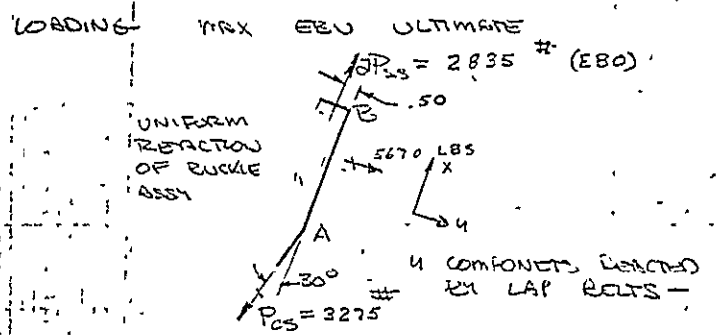 LOADING - MAX EBU ULTIMATE
2P_SS = 2835 # (EBO)
.50
B
UNIFORM
REACTION
OF BUCKLE
ASSY
5670 LBS
X
y
A
30°
P_CS = 3275 #
y COMPONETS REACTED
BY LAP BELTS -